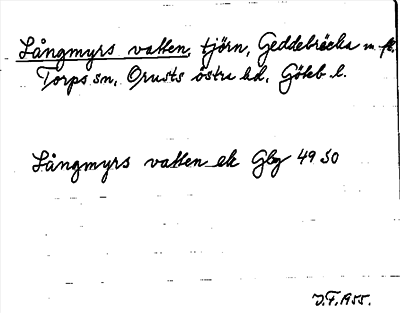 Långmyrs vatten, tjörn, Geddebräcka m. fl.
Torps sn, Orusts östra hd, Göteb l.
Långmyrs vatten ek Gbg 49 SO
J.F. 1955.